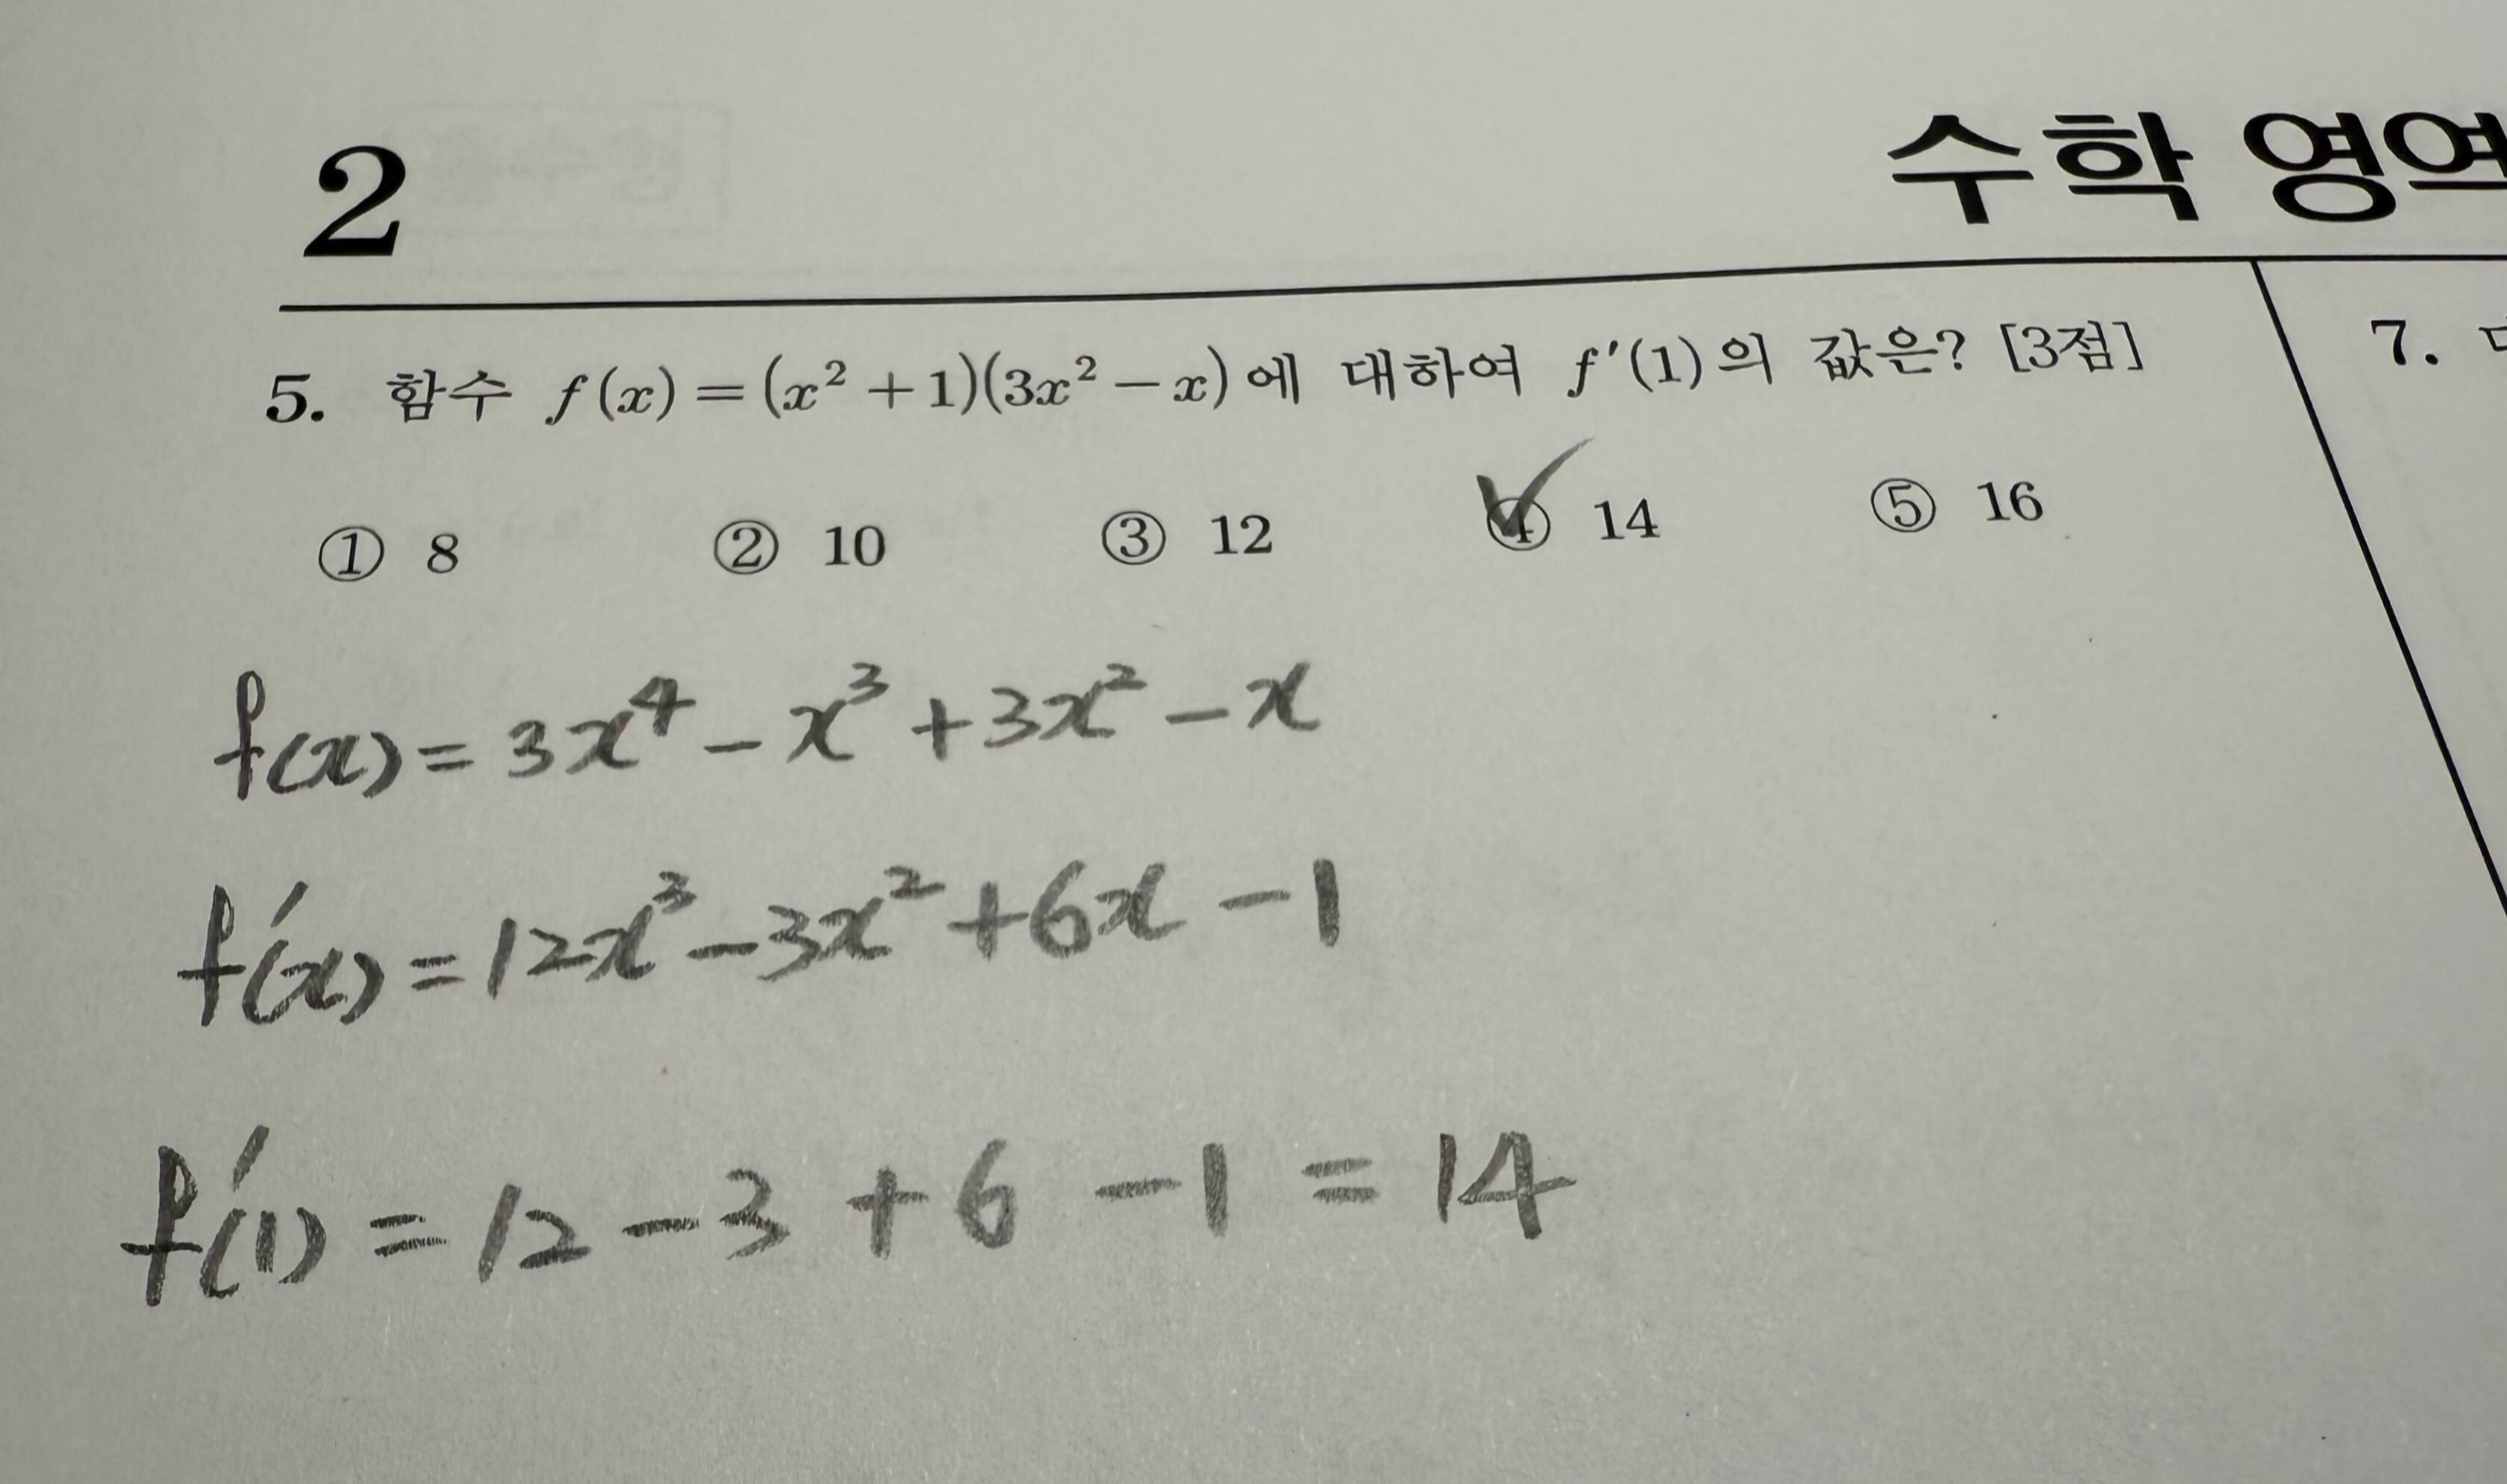 2
수학 영역
5. 함수 f(x) = (x² + 1)(3x² − x)에 대하여 f′(1)의 값은? [3점]
① 8 ② 10 ③ 12 ④ 14 ⑤ 16
f(x) = 3x⁴ − x³ + 3x² − x
f′(x) = 12x³ − 3x² + 6x − 1
f′(1) = 12 − 3 + 6 − 1 = 14
7.